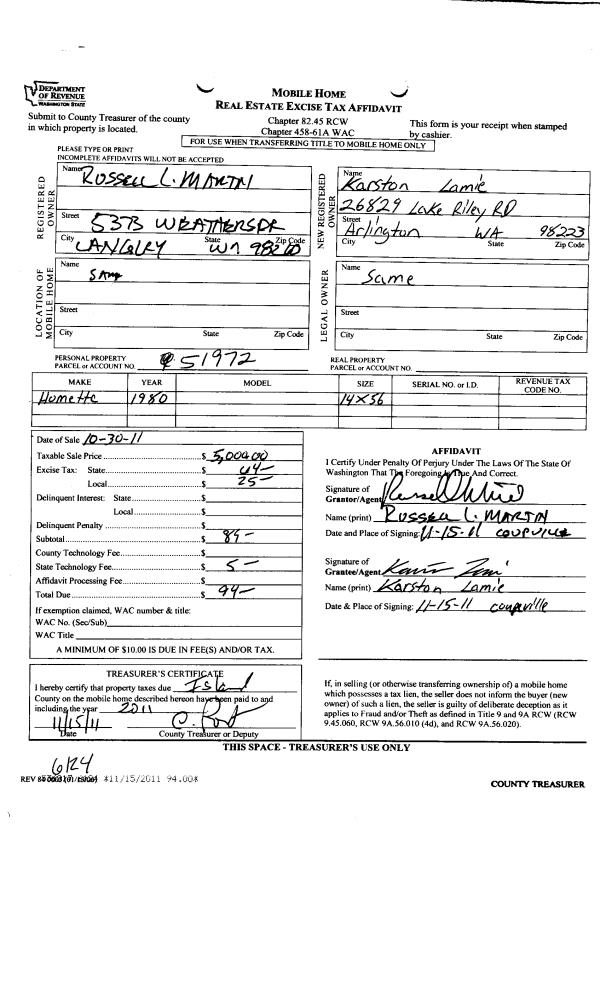 DEPARTMENT
OF REVENUE
WASHINGTON STATE
MOBILE HOME
REAL ESTATE EXCISE TAX AFFIDAVIT
Submit to County Treasurer of the county
in which property is located.
Chapter 82.45 RCW
Chapter 458-61A WAC
This form is your receipt when stamped
by cashier.
FOR USE WHEN TRANSFERRING TITLE TO MOBILE HOME ONLY
PLEASE TYPE OR PRINT
INCOMPLETE AFFIDAVITS WILL NOT BE ACCEPTED
REGISTERED
OWNER
Name RUSSELL L. MARTIN
Street 5373 WEATHERSDR
City LANGLEY State WA Zip Code
NEW REGISTERED
OWNER
Name Karston Lamie
26829 Lake Riley RD
Street
Arlington WA 98223
City State Zip Code
LOCATION OF
MOBILE HOME
Name SAME
Street
City State Zip Code
LEGAL OWNER
Name
Same
Street
City State Zip Code
PERSONAL PROPERTY
PARCEL or ACCOUNT NO. 51972
REAL PROPERTY
PARCEL or ACCOUNT NO.
MAKE YEAR MODEL SIZE SERIAL NO. or I.D. REVENUE TAX CODE NO.
Homette 1980 14X56
Date of Sale 10-30-11
Taxable Sale Price $ 5,000.00
Excise Tax: State $ 64-
Local $ 25-
Delinquent Interest: State $
Local $
Delinquent Penalty $
Subtotal $ 89-
County Technology Fee $
State Technology Fee $ 5-
Affidavit Processing Fee $
Total Due $ 94-
If exemption claimed, WAC number & title:
WAC No. (Sec/Sub)
WAC Title
A MINIMUM OF $10.00 IS DUE IN FEE(S) AND/OR TAX.
AFFIDAVIT
I Certify Under Penalty Of Perjury Under The Laws Of The State Of
Washington That The Foregoing Is True And Correct.
Signature of
Grantor/Agent
Name (print) RUSSELL L. MARTIN
Date and Place of Signing: 11-15-11 COUPVILLE
Signature of
Grantee/Agent
Name (print) Karston Lamie
Date & Place of Signing: 11-15-11 coupville
TREASURER'S CERTIFICATE
I hereby certify that property taxes due Island
County on the mobile home described hereon have been paid to and
including the year 2011
11/15/11
Date County Treasurer or Deputy
If, in selling (or otherwise transferring ownership of) a mobile home
which possesses a tax lien, the seller does not inform the buyer (new
owner) of such a lien, the seller is guilty of deliberate deception as it
applies to Fraud and/or Theft as defined in Title 9 and 9A RCW (RCW
9.45.060, RCW 9A.56.010 (4d), and RCW 9A.56.020).
THIS SPACE - TREASURER'S USE ONLY
6124
REV 84 #11/15/2011 94.00*
COUNTY TREASURER